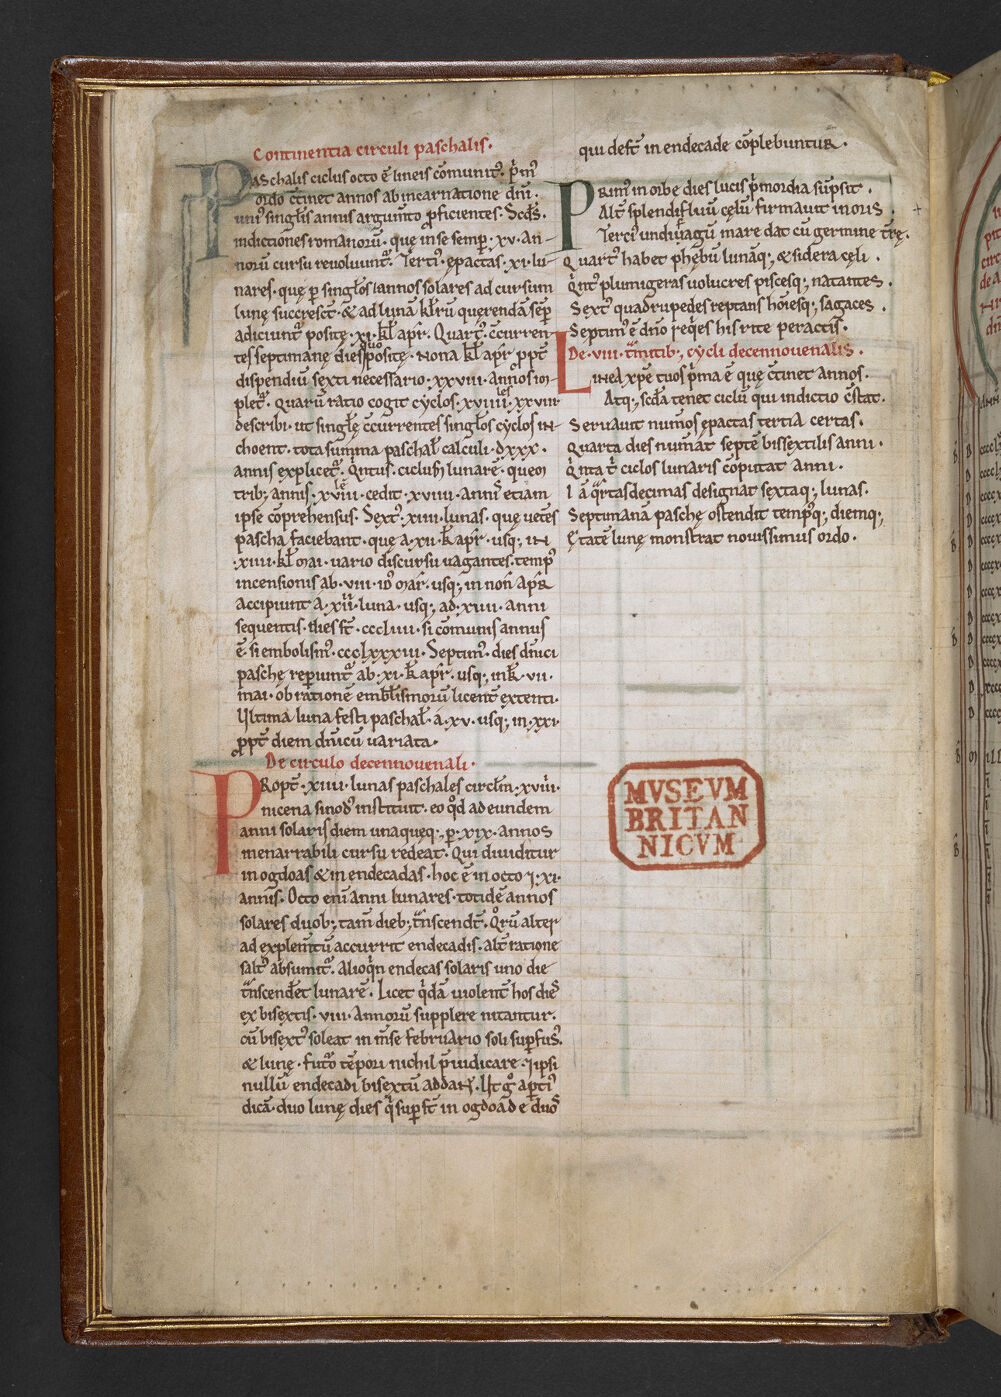 Continentia circuli paschalis.
Paschalis ciclus octo ē lineis cōmunit᾽. p̄m᾽
ordo c̄tinet annos ab incarnatione dn̄i.
uni᾽ singlīs annis argum̄to ꝓficientes. Scd̄s.
indictiones romanorū. quę in se semꝑ. xv. an-
norū cursu reuoluunt᾽. Terti᾽. ępactas. xi. lu-
nares. quę ꝑ singłos iannos solares ad cursum
lunę succresct̄. & ad lunā kłrū querendā seꝑ
adiciunt᾽ positę. xi. kł apř. Quart᾽. c̄curren
tes septimanę dies positę. Nona kł apř ꝓpt̄
dispendiū sexti necessario. xxviii. annos im-
plet᾽. quarū ratio cogit cyclos. xviiii. xxviii
describi. ut singłę c̄currentes singłos cyclos in-
choent. tota summa paschał calculi. dxxx.
annis explicet᾽. Qintus. ciclus lunarē. quem
trib; annis. xviii. cedit. xviiii. anni etiam
ipse cōprehensus. Sext᾽. xiiii. lunas. quę uet̄es
pascha faciebant. quę a. xii. k̄ apř. usq; in
.xiiii. kł mai. uario discursu uagantes. temp᾽
incensionis ab. viii. id᾽ mař. usq; in non̄ apř
accipiunt a. xii. luna. usq; ad. xiiii. anni
sequentis. dies st̄. cccliiii. si cōmunis annus
ē. si embolism᾽. ccclxxxiii. Septim᾽. dies dn̄ici
paschę reperiunt᾽ ab. xi. k̄ apř. usq; in k̄. vii.
mai. ob rationē emblismorū licent̄ extenti.
Ultima luna festi paschał. a. xv. usq; in. xxi.
ꝓpt̄ diem dn̄icū uariata.
De circulo decennouenali.
Propt̄. xiiii. lunas paschales circłm. xviiii.
nicena sinod᾽ instituit. eo qd̄ ad eundem
anni solaris diem unaqueq; ꝑ. xix. annos
inenarrabili cursu redeat. Qui diuiditur
in ogdoas & in endecadas. hoc ē in octo ⁊. xi.
annis. Octo eni᾽ anni lunares. totidē annos
solares duob; tam̄ dieb; t̄nscendt̄. Qrū alter
ad explem̄tū accurrit endecadis. alt̄ ratione
salt᾽ absumit᾽. Alioqn̄ endecas solaris uno die
t̄nscendēt lunarē. Licet qdā uiolent̄ hos dies
ex bisextis. viii. annorū supplere nitantur.
cū bisext᾽ soleat in m̄se februario soli supfus᾽.
& lunę. fut᾽o tēpori nichil p̄iudicare. ⁊ ipsi
nullū endecadi bisextū addař. Ut g° apti᾽
dicā. duo lunę dies q̄ supst̄ in ogdoad̄e duo᾽
qui deſt̄ in endecade cōplebuntur.
Prim᾽ in orbe dies lucis p̄mordia sūpsit.
Alt̄ splendifluū cęlū firmauit in oris.
Terci᾽ undiuagū mare dat cū germine tr̄ę.
Quart᾽ habet phębū lunāq; & sidera cęli.
Qint᾽ plumigeras uolucres piscesq; natantes.
Sext᾽ quadrupedes reptans hōiesq; sagaces.
Septim᾽ ē dn̄o req̇es his rite peractis.
De. viii. t̄mitib; cycli decennouenalis.
Linea xp̄e tuos p̄ma ē quę c̄tinet annos.
Atq; scd̄a tenet ciclū qui indictio c̄stat.
Seruauit num᾽os ępactas tertia certas.
Quarta dies num᾽at septē bissextilis anni.
Qinta t̄ ciclos lunaris cōputat anni.
Iā q᾽rtasdecimas designat sextaq; lunas.
Septimanā paschę ostendit temp᾽q; diemq;
Ętatē lunę monstrat nouissimus ordo.
MVSEVM
BRITAN
NICVM